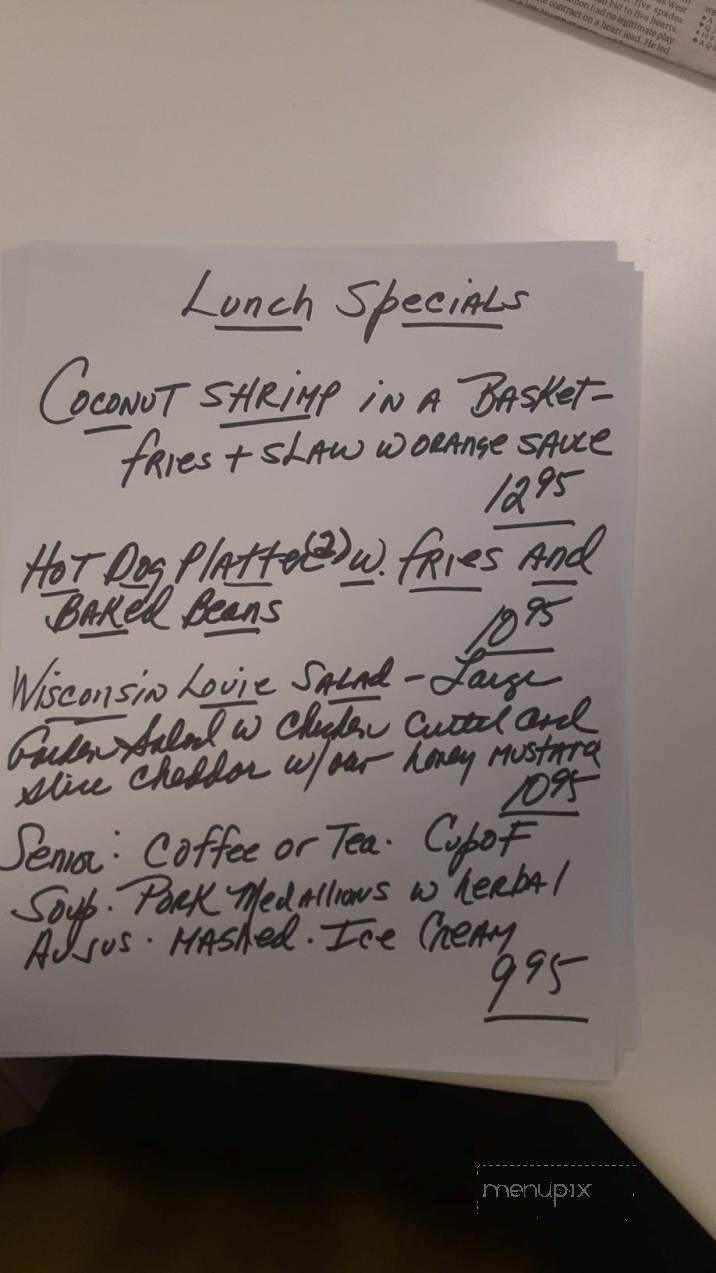 five spades
bid to five hearts.
tion had no legitimate play
contract on a heart lead. He led
Lunch Specials
Coconut Shrimp in a Basket-
fries + slaw w orange sauce
12 95
Hot Dog Platter (2) w. fries And
Baked Beans
10 95
Wisconsin Louie Salad - Large
Garden Salad w Chicken Cutlet and
slice cheddar w/our honey mustard
10 95
Senior: Coffee or Tea. Cup of
Soup. Pork Medallions w herbal
Aujus. Mashed. Ice Cream
9 95
menupix